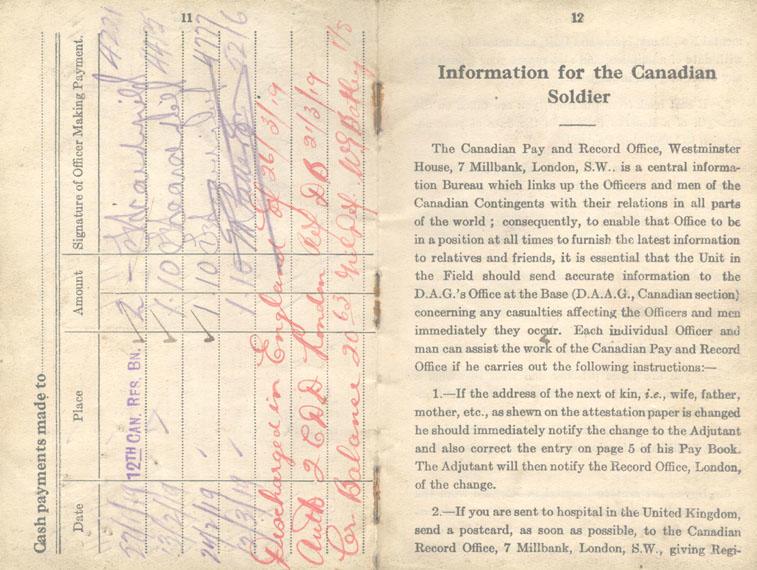 11
Cash payments made to
Date Place Amount Signature of Officer Making Payment.
27/1/19 12TH CAN. RES. BN. 2 - 4221
13/2/19 " 1. 10 4425
20/2/19 " 1. 10 4777
1. 10 5216
Discharged in England 26/3/19
Auth 2 CDD London DB 21/3/19
Cr. Balance 20
12
Information for the Canadian
Soldier
The Canadian Pay and Record Office, Westminster
House, 7 Millbank, London, S.W.. is a central informa-
tion Bureau which links up the Officers and men of the
Canadian Contingents with their relations in all parts
of the world ; consequently, to enable that Office to be
in a position at all times to furnish the latest information
to relatives and friends, it is essential that the Unit in
the Field should send accurate information to the
D.A.G.'s Office at the Base (D.A.A.G., Canadian section)
concerning any casualties affecting the Officers and men
immediately they occur. Each individual Officer and
man can assist the work of the Canadian Pay and Record
Office if he carries out the following instructions:—
1.—If the address of the next of kin, i.e., wife, father,
mother, etc., as shewn on the attestation paper is changed
he should immediately notify the change to the Adjutant
and also correct the entry on page 5 of his Pay Book.
The Adjutant will then notify the Record Office, London,
of the change.
2.—If you are sent to hospital in the United Kingdom,
send a postcard, as soon as possible, to the Canadian
Record Office, 7 Millbank, London, S.W., giving Regi-